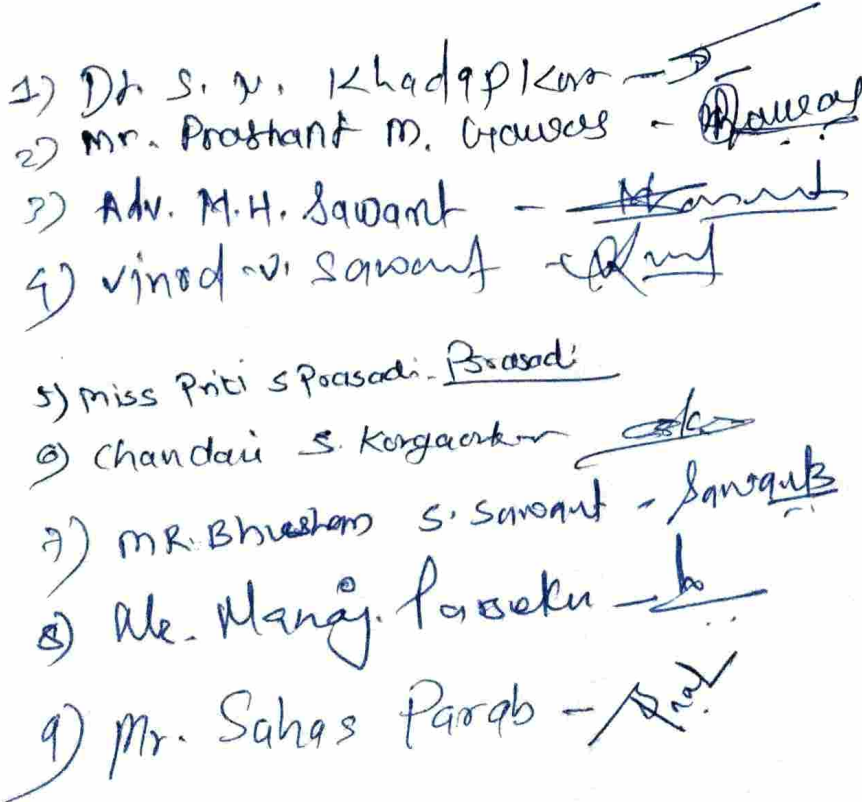 1) Dr. S. N. Khadapkar -
2) Mr. Prashant M. Gawas - Gawas
3) Adv. M.H. Sawant -
4) Vinod .V. Sawant -
5) Miss Priti S Prasadi - Prasadi
6) Chandan S. Korgaonkar
7) MR. Bhushan S. Sawant - Sawant
8) Mr. Manoj. Parsekar -
9) Mr. Sahas Parab -